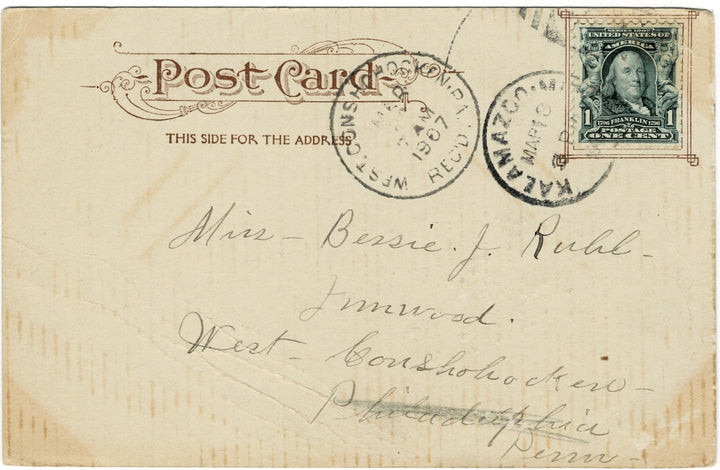 Post Card
THIS SIDE FOR THE ADDRESS
WEST. CONSHOHOCKEN. PA.
MAR
AM
1907
REC'D.
KALAMAZOO. MICH
MAR 18
SERIES 1902
UNITED STATES OF
AMERICA
1 1706 FRANKLIN 1790 1
POSTAGE
ONE CENT
Miss - Bessie. J. Ruhl -
West - Conshohocken -
Philadelphia
Penn -